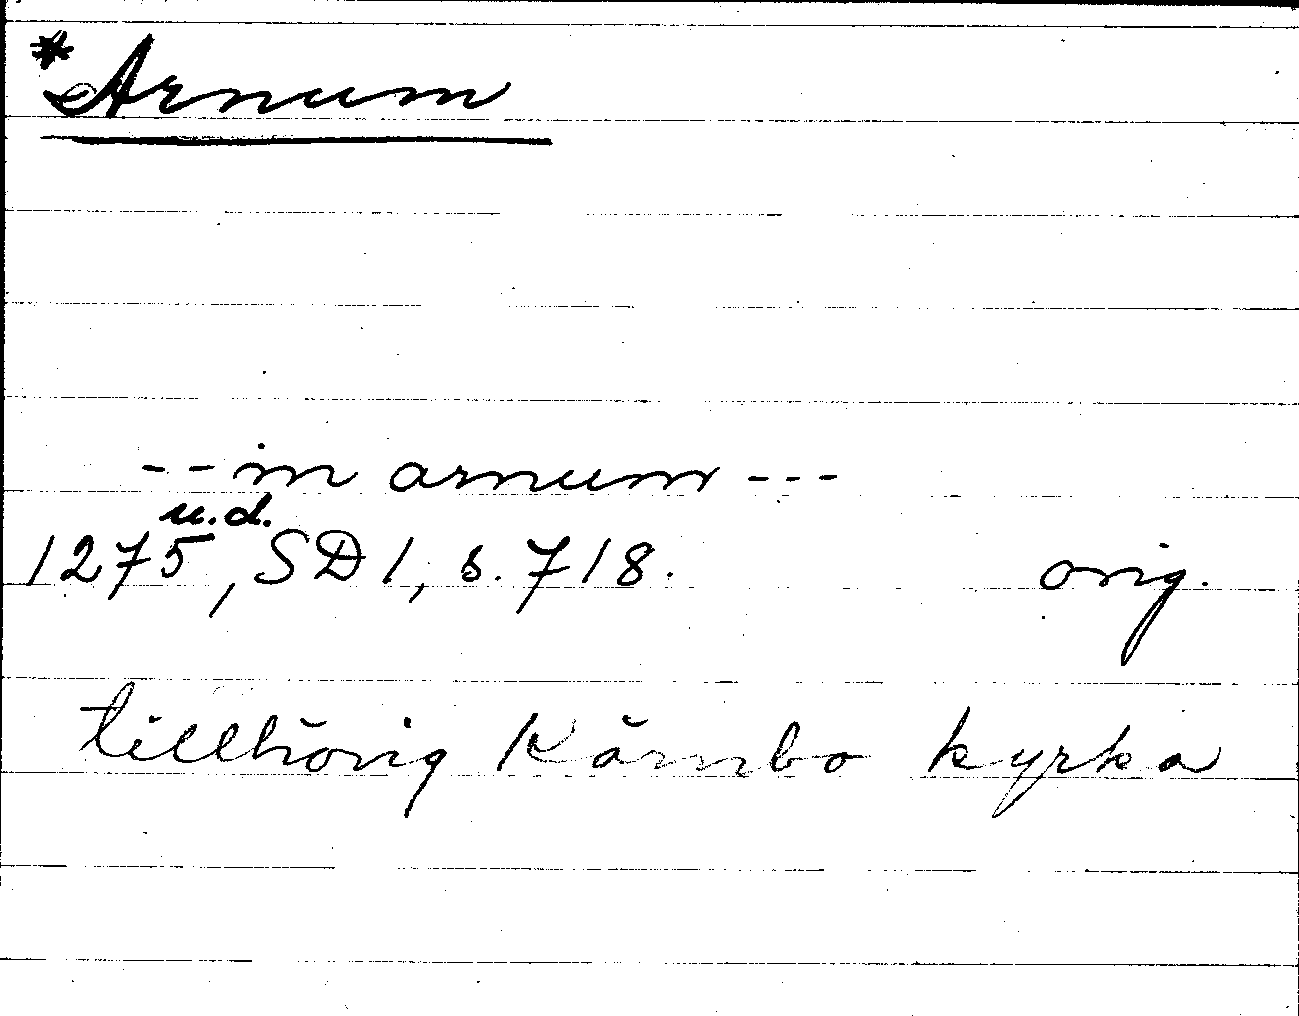 *Arnum
-- in arnum ---
u.d.
1275, SD 1, s. 718. orig.
tillhörig Kärnbo kyrka